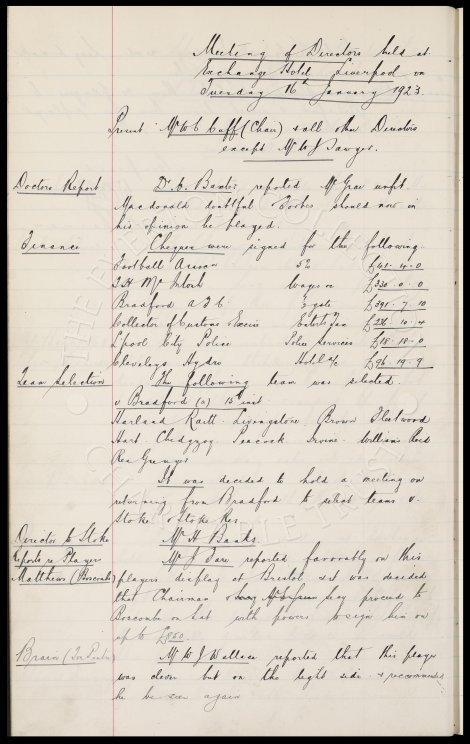 Meeting of Directors held at
Exchange Hotel Liverpool on
Tuesday 16th January 1923.
Present Mr W C Cuff (Chair) & all other Directors
except Mr W J Sawyer.
Doctors Report
Dr. A. Baxter, reported Mr Grew unfit.
Macdonald doubtful Forbes should now in
his opinion be played.
Finance
Cheques were signed for the following.
Football Assocn 5% £41-4-0
T H McIntosh Wages &c £330-0-0
Bradford A F C. £391-7-10
Collector of Customs & Excise Entert Tax £226-10-4
L'pool City Police Police Services £18-18-0
Cleveleys Hydro Hotel a/c £96-19-9
Team Selection
The following team was selected.
v Bradford (a) inst
Harland Raitt Livingstone Brown Fleetwood
Hart Chedgzoy Peacock Irvine Williams Reid
Res Grenyer
It was decided to hold a meeting on
returning from Bradford to select teams v.
Stoke & Stoke Res
Director to Stoke
Mr H Banks.
Reports re Player
Matthews (Boscombe)
Mr J Fare reported favorably on this
players display at Bristol & it was decided
that Chairman & Secy proceed to
Boscombe on Sat with powers to sign him on
up to £850
Brain (Ton Pentre)
Mr W J Wallace reported that this player
was clever but on the light side & recommended
he be seen again